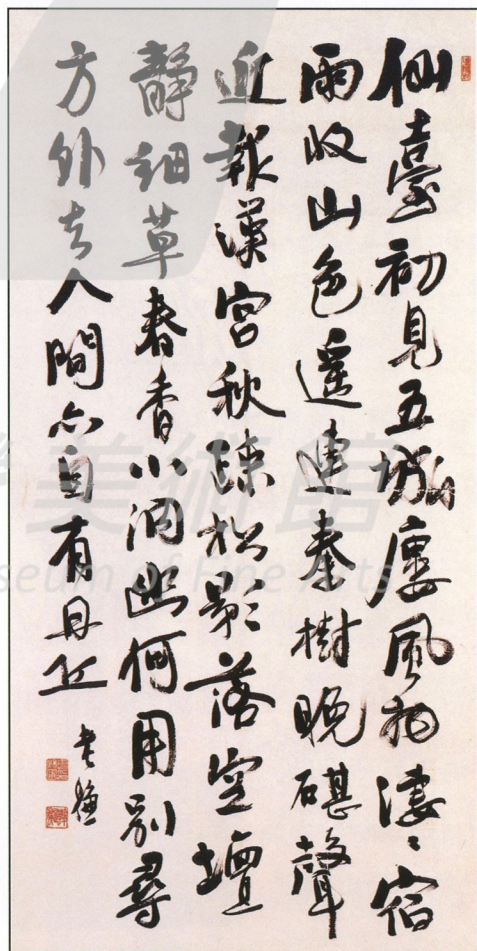 仙臺初見五城廔風物淒〻宿
雨收山色遙連秦樹晚碪聲
近報漢宮秋疎松影落空壇
靜細草春香小洞幽何用別尋
方外去人間亦自有丹丘
美術館
seum of Fine Arts